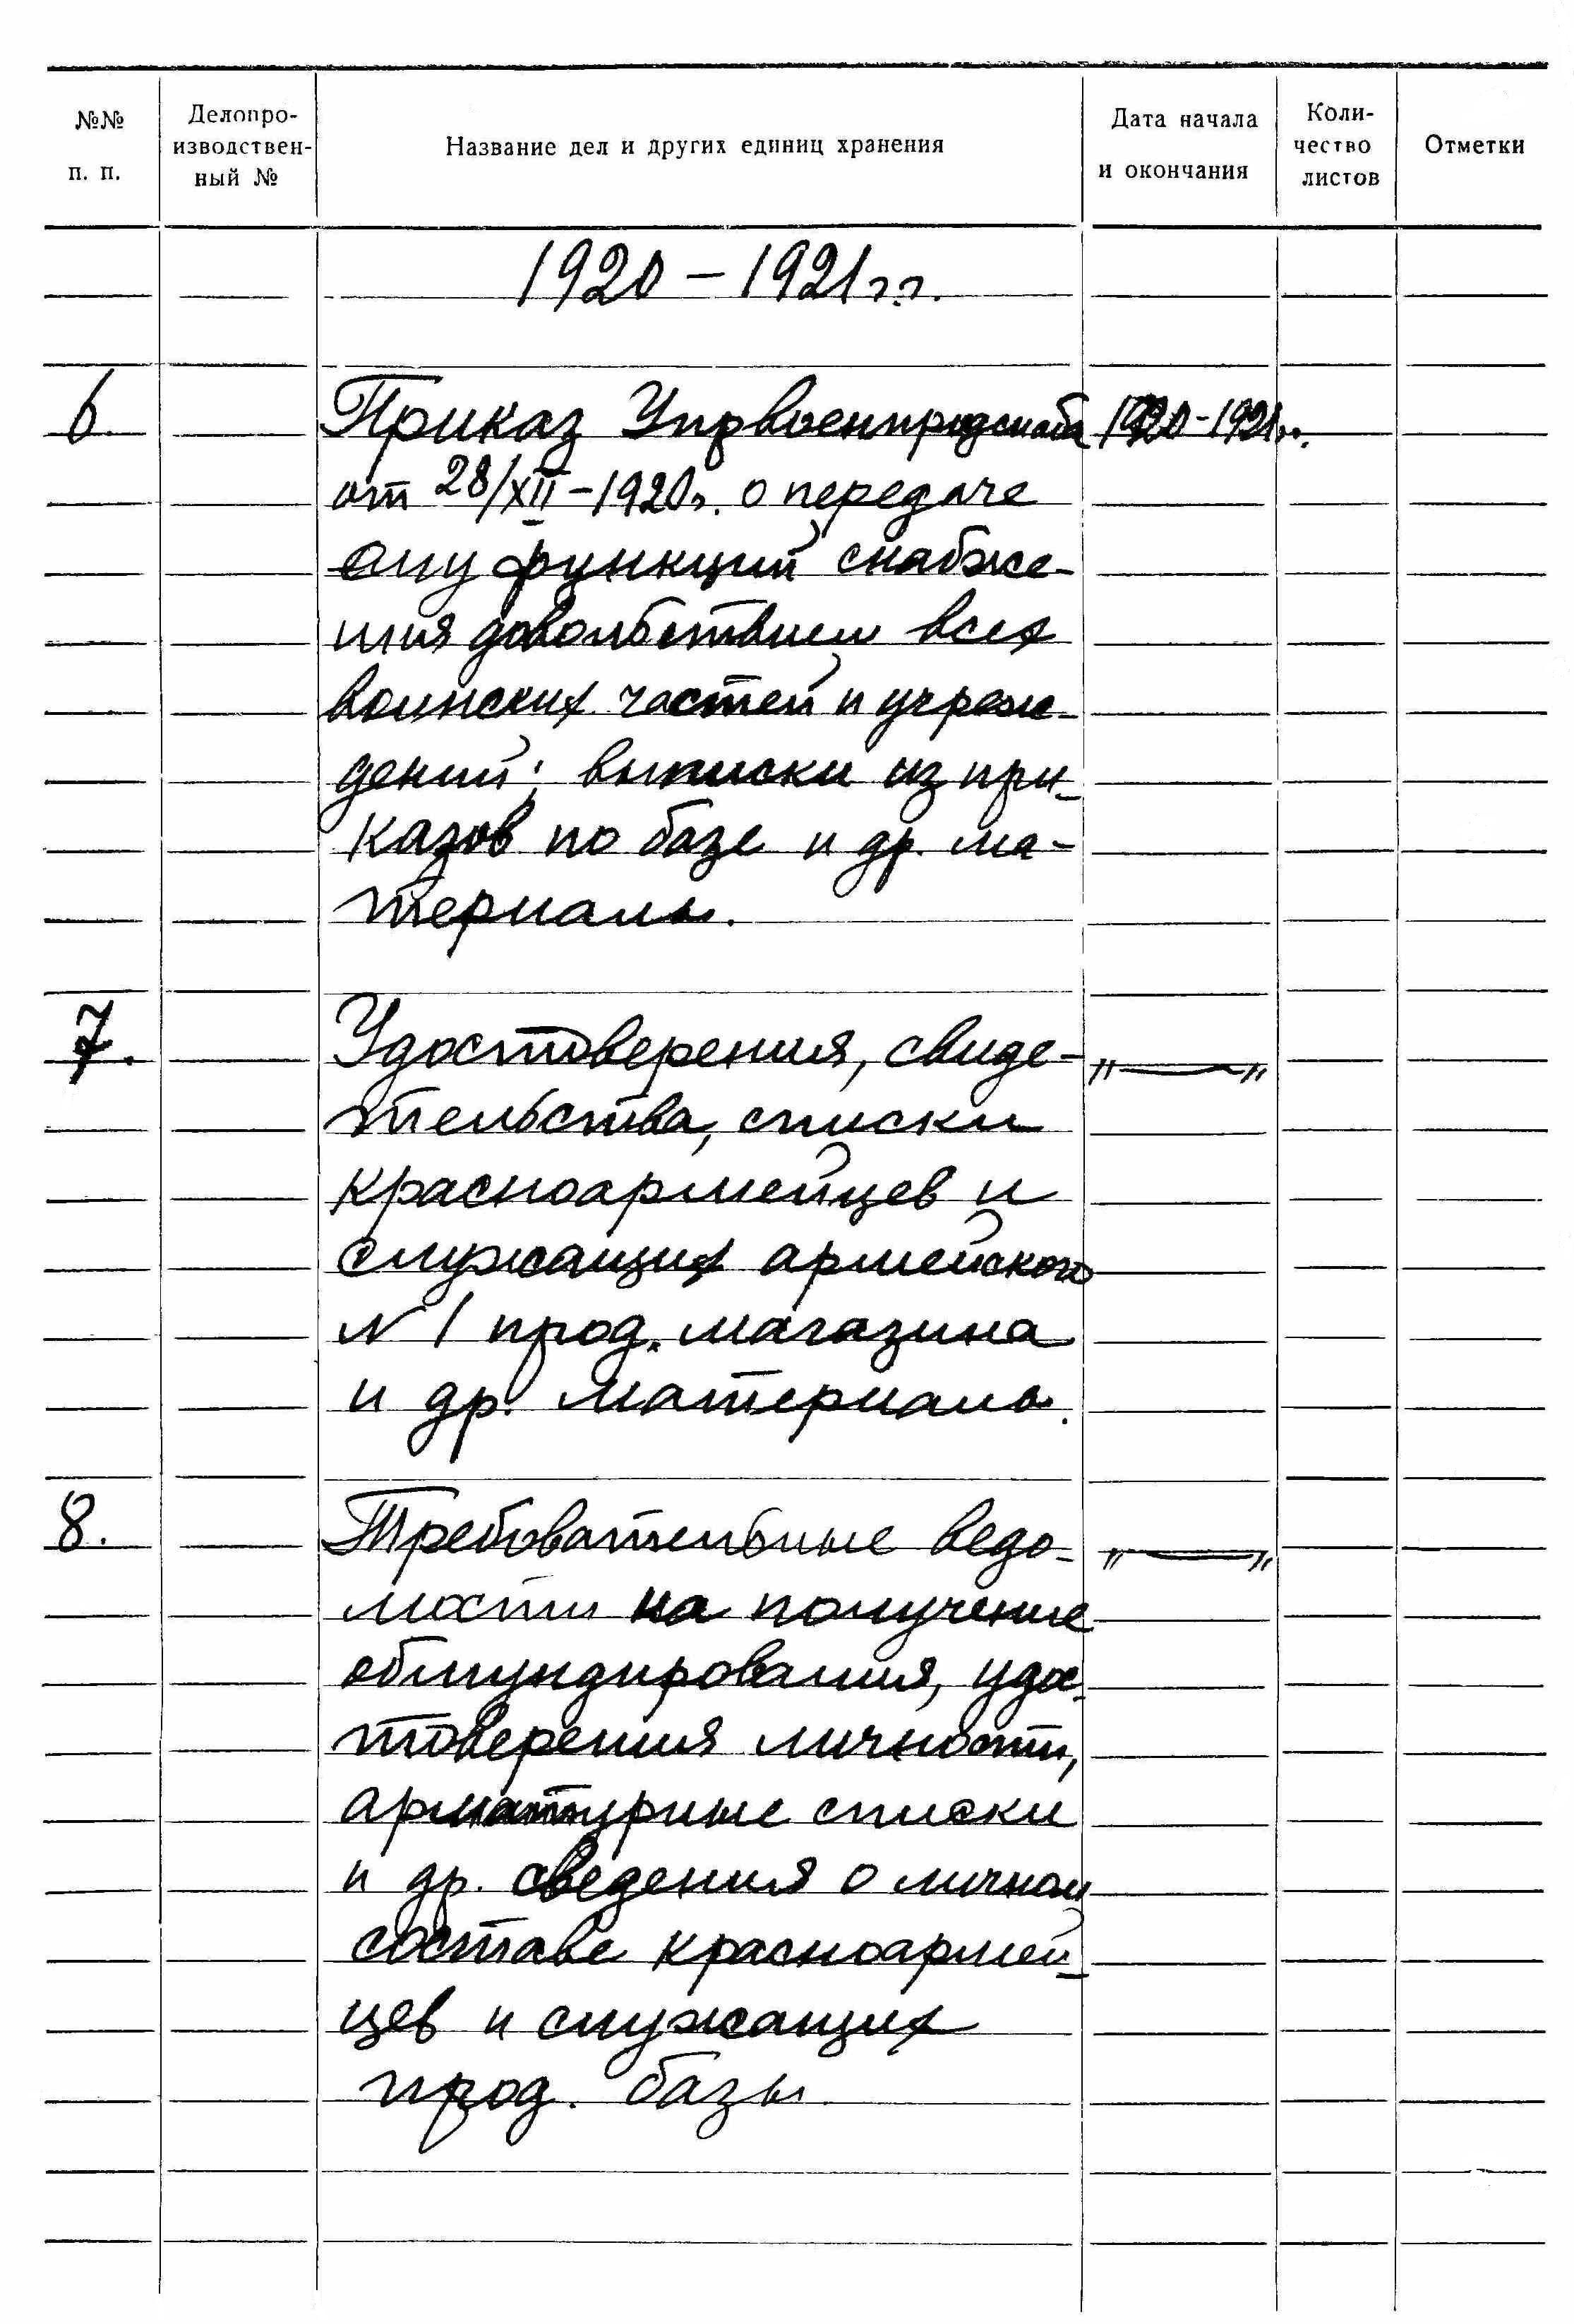 №№ п. п.
Делопро-
изводствен-
ный №
Название дел и других единиц хранения
Дата начала
и окончания
Коли-
чество
листов
Отметки
1920 – 1921 г.г.
6. Приказ Упрвоенпродснаба 1920-1921 г.г.
от 28/XII – 1920 г. о передаче
ему функций снабже-
ния довольствием всех
воинских частей и учреж-
дений; выписки из при-
казов по базе и др. ма-
териалы.
7. Удостоверения, свиде- „ — „
тельства, списки
красноармейцев и
служащих армейского
N 1 прод. магазина
и др. материалы.
8. Требовательные ведо- „ — „
мости на получение
обмундирования, удос-
товерения личности,
арматурные списки
и др. сведения о личном
составе красноармей-
цев и служащих
прод. базы